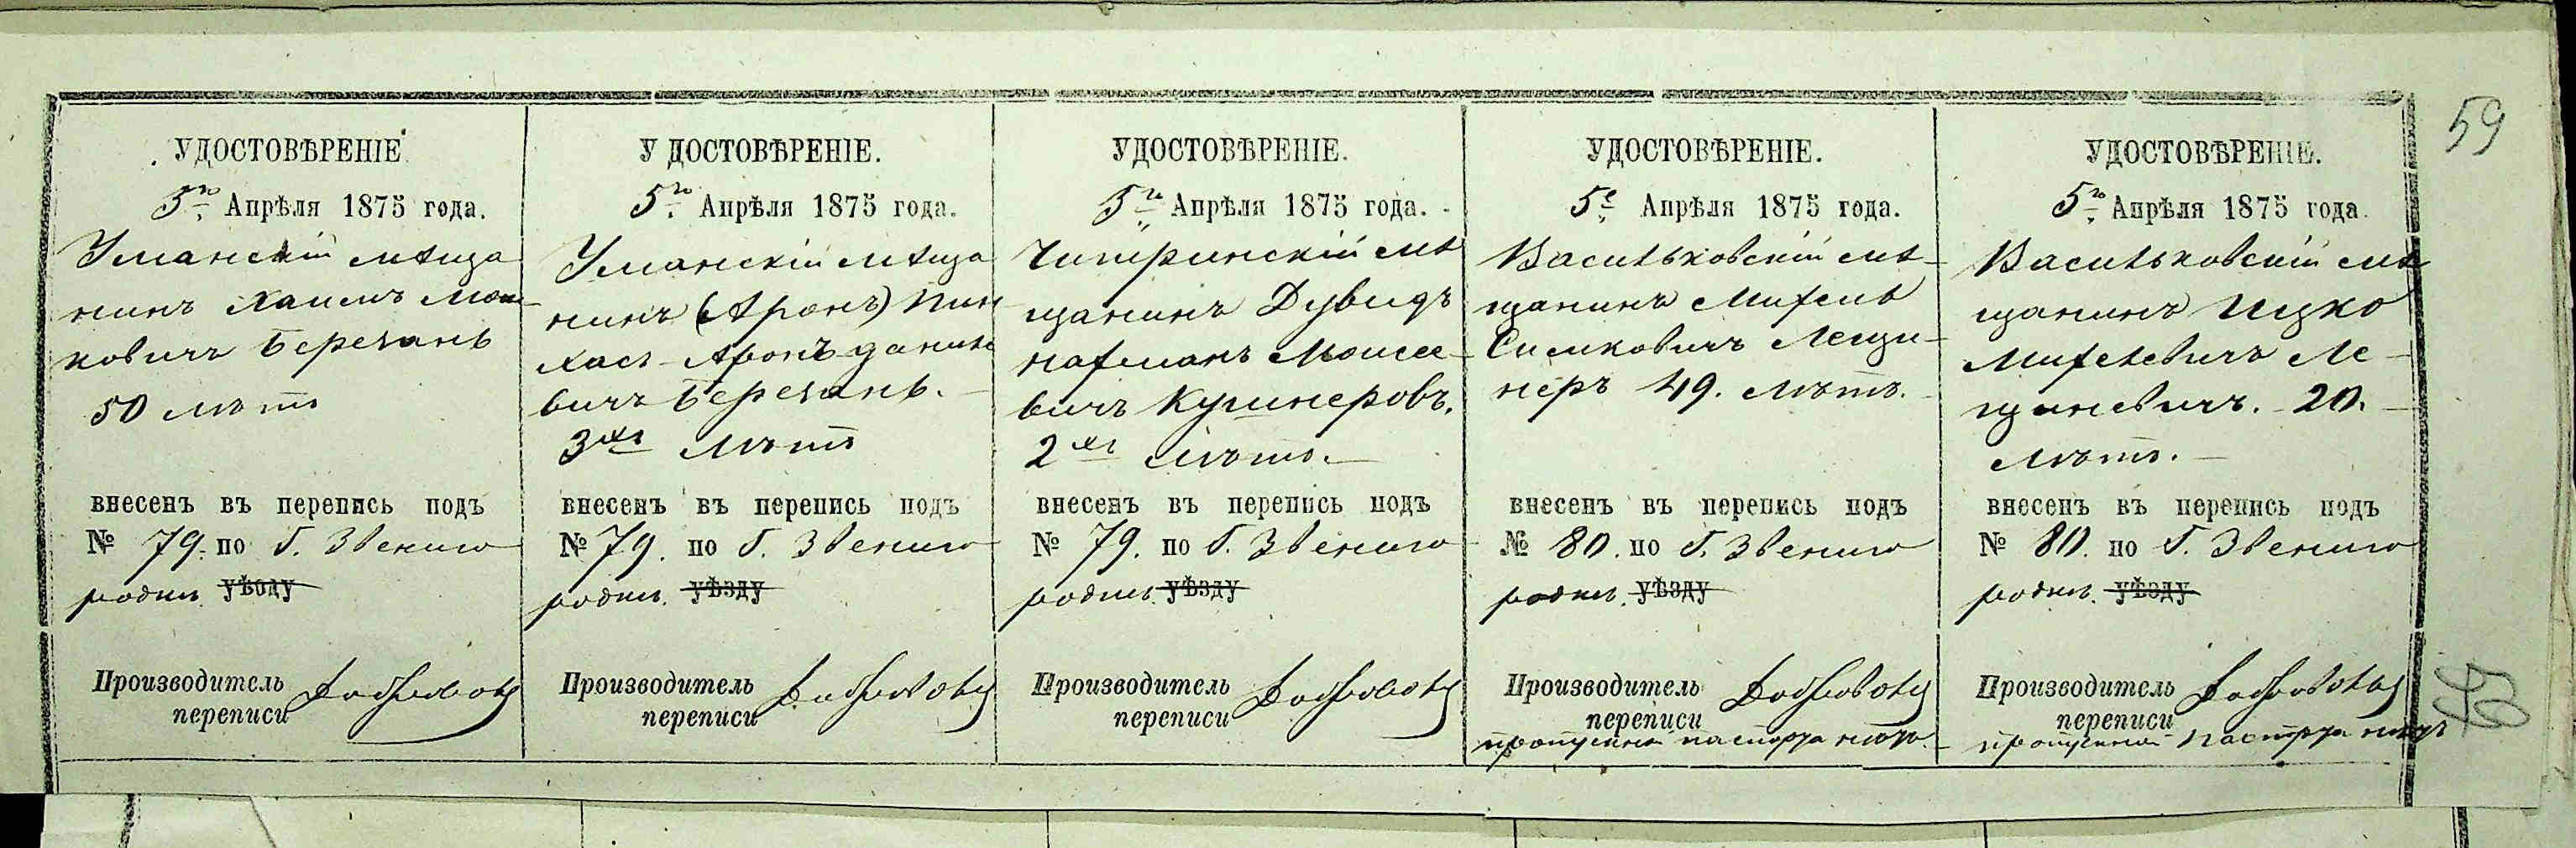 59
УДОСТОВѢРЕНІЕ
5го Апрѣля 1875 года.
Уманскій мѣща
нинъ Хаимъ Мош-
ковичъ Беречанъ
50 лѣтъ
внесенъ въ перепись подъ
№ 79. по Г. Звениго
родкѣ. уѣзду
Производитель
переписи
УДОСТОВѢРЕНІЕ.
5го Апрѣля 1875 года.
Уманскій мѣща
нинъ (Аронъ) Пин
хасъ-Аронъ Данило
вичъ Беречанъ.
3хъ лѣтъ
внесенъ въ перепись подъ
№ 79. по Г. Звениго
родкѣ. уѣзду
Производитель
переписи
УДОСТОВѢРЕНІЕ.
5го Апрѣля 1875 года.
Чигиринскій мѣ
щанинъ Дувидъ
Нахманъ Моисее-
вичъ Кушнеровъ.
2хъ лѣтъ.
внесенъ въ перепись подъ
№ 79. по Г. Звениго
родкѣ. уѣзду
Производитель
переписи
УДОСТОВѢРЕНІЕ.
5е Апрѣля 1875 года.
Васильковскій мѣ-
щанинъ Михель
Симковичъ Лещи-
неръ 49. лѣтъ.
внесенъ въ перепись подъ
№ 80. по Г. Звениго
родкѣ. уѣзду
Производитель
переписи
паспорта
УДОСТОВѢРЕНІЕ.
5го Апрѣля 1875 года.
Васильковскій мѣ
щанинъ Ицко
Михелевичъ Ле-
20.
лѣтъ.
внесенъ въ перепись подъ
№ 80. по Г. Звениго
родкѣ. уѣзду
Производитель
переписи
паспорта